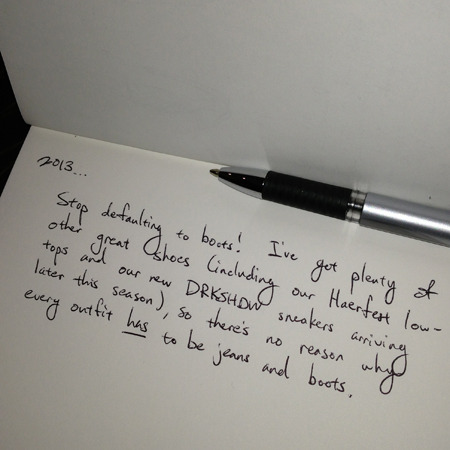 2013...
Stop defaulting to boots! I've got plenty of
other great shoes (including our Haerfest low-
tops and our new DRKSHDW sneakers arriving
later this season), so there's no reason why
every outfit has to be jeans and boots.